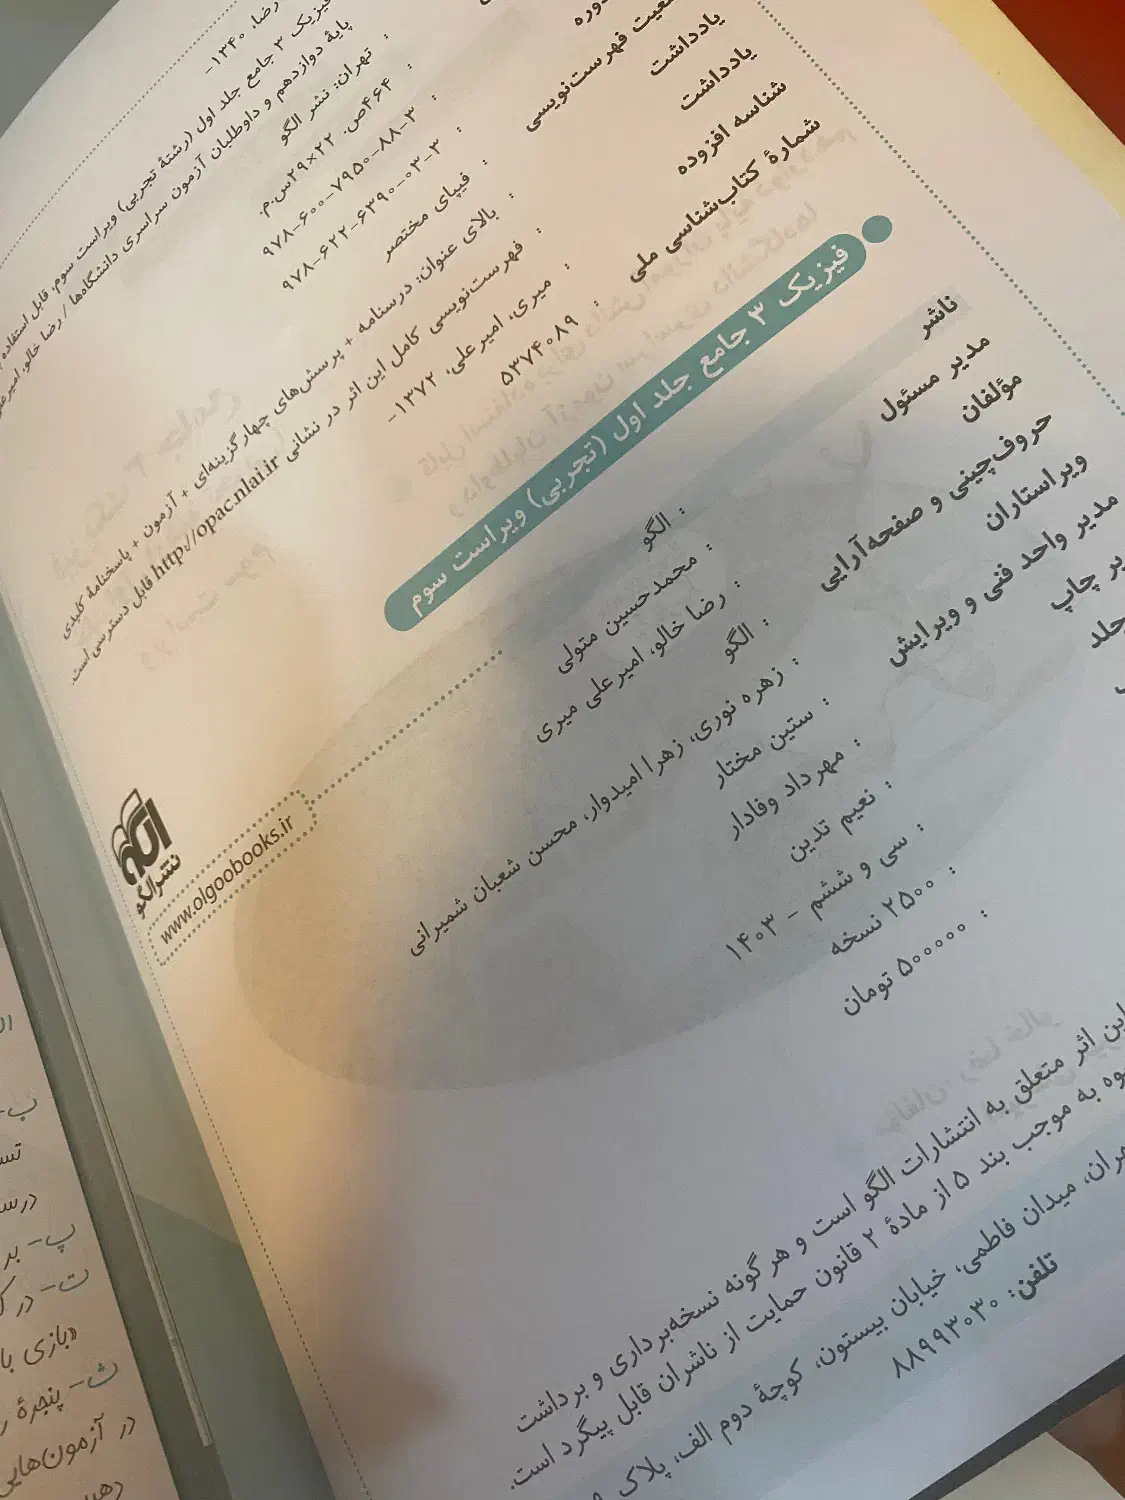 رضا، ۱۳۴۰-
فیزیک ۳ جامع جلد اول (رشتهٔ تجربی) ویراست سوم، قابل استفاده
پایهٔ دوازدهم و داوطلبان آزمون سراسری دانشگاه‌ها / رضا خالو، امیرعلی
: تهران: نشر الگو
: ۴۶۴ص. ۲۲×۲۹س.م.
: ۳-۸۸-۷۹۵۰-۶۰۰-۹۷۸
: ۳-۰۳-۶۳۹۰-۶۲۲-۹۷۸
وضعیت فهرست‌نویسی : فیپای مختصر
یادداشت : بالای عنوان: درسنامه + پرسش‌های چهارگزینه‌ای + آزمون + پاسخنامهٔ کلیدی
یادداشت : فهرست‌نویسی کامل این اثر در نشانی http://opac.nlai.ir قابل دسترسی است.
شناسه افزوده : میری، امیرعلی، ۱۳۷۲-
شمارهٔ کتاب‌شناسی ملی : ۵۳۷۴۰۸۹
فیزیک ۳ جامع جلد اول (تجربی) ویراست سوم
ناشر : الگو
مدیر مسئول : محمدحسین متولی
مؤلفان : رضا خالو، امیرعلی میری
حروف‌چینی و صفحه‌آرایی : الگو
ویراستاران : زهره نوری، زهرا امیدوار، محسن شعبان شمیرانی
مدیر واحد فنی و ویرایش : ستین مختار
یر چاپ : مهرداد وفادار
جلد : نعیم تدین
: سی و ششم - ۱۴۰۳
: ۲۵۰۰ نسخه
: ۵۰۰۰۰۰ تومان
الگو
نشر الگو
www.olgoobooks.ir
این اثر متعلق به انتشارات الگو است و هر گونه نسخه‌برداری و برداشت
به موجب بند ۵ از مادهٔ ۲ قانون حمایت از ناشران قابل پیگرد است.
میدان فاطمی، خیابان بیستون، کوچهٔ دوم الف، پلاک
تلفن: ۸۸۹۹۳۰۳۰
ب-
پ- بر
ت- در
«بازی با
ث- پنجرهٔ
در آزمون‌هایی